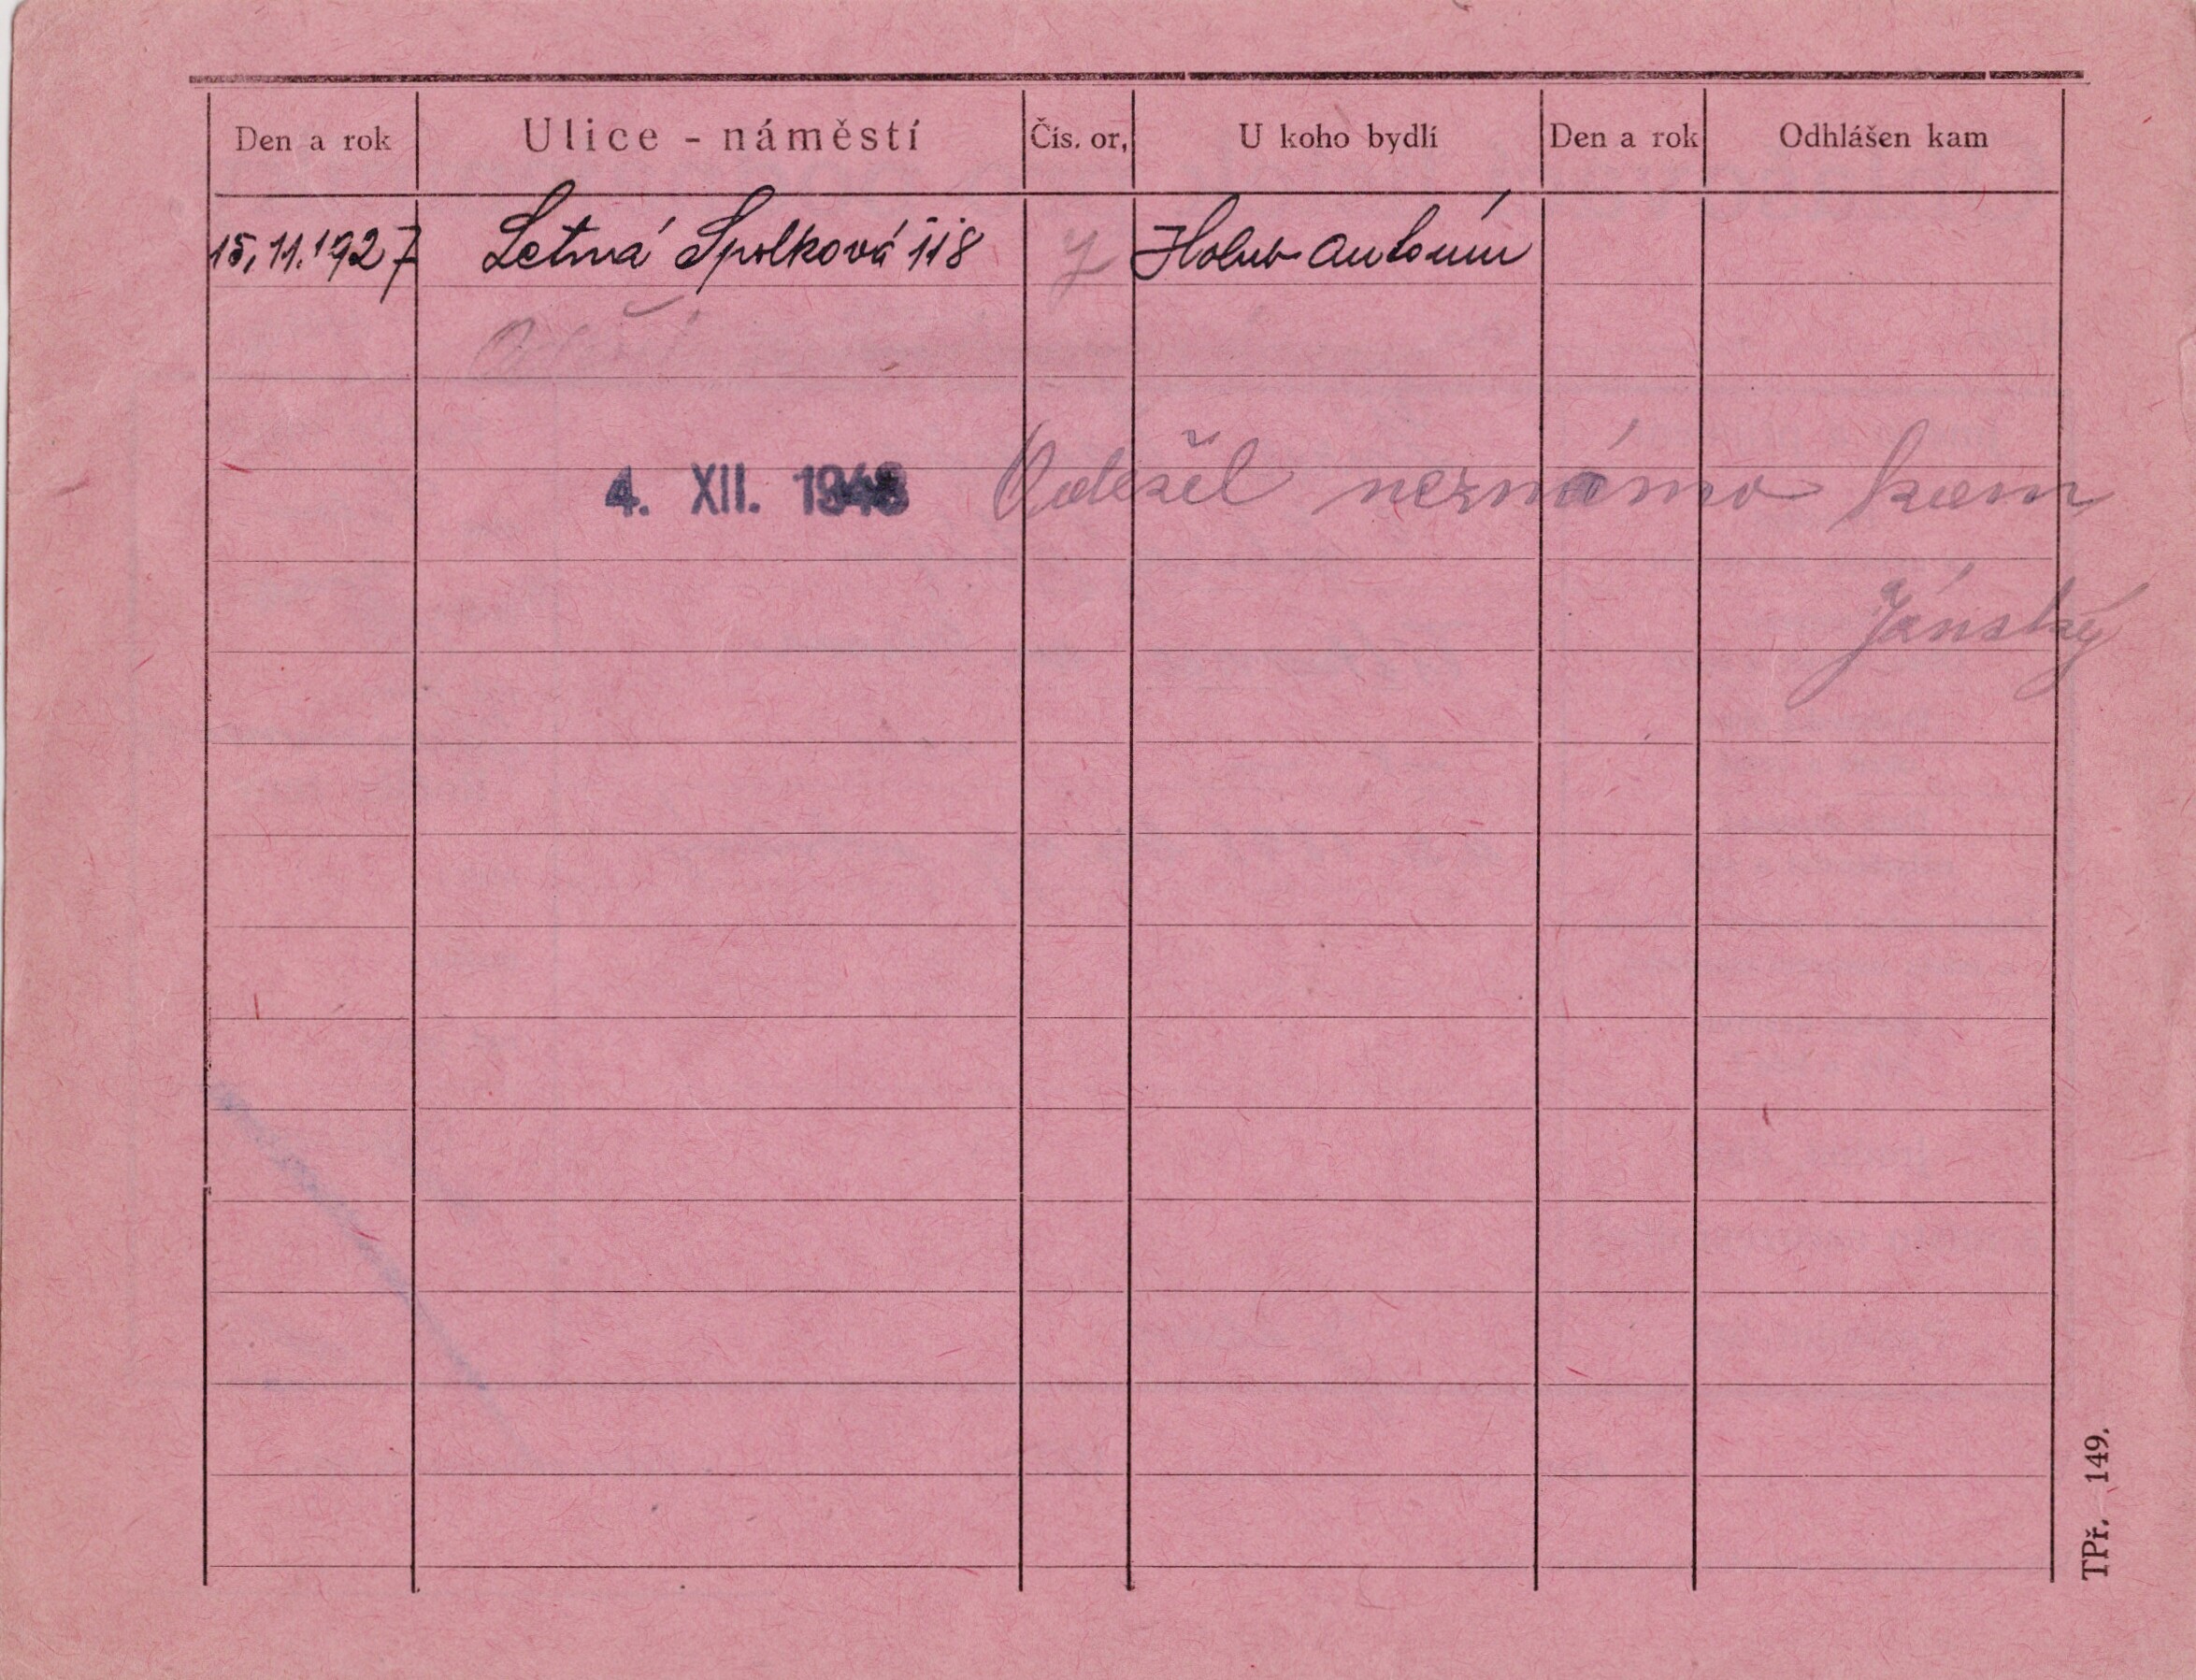 Den a rok Ulice - náměstí Čís. or, U koho bydlí Den a rok Odhlášen kam
15. 11. 1927 Letná Spolková 118 7 Holub Antonín
4. XII. 1948 Odešel neznámo kam
Jánský
TPř. 149.